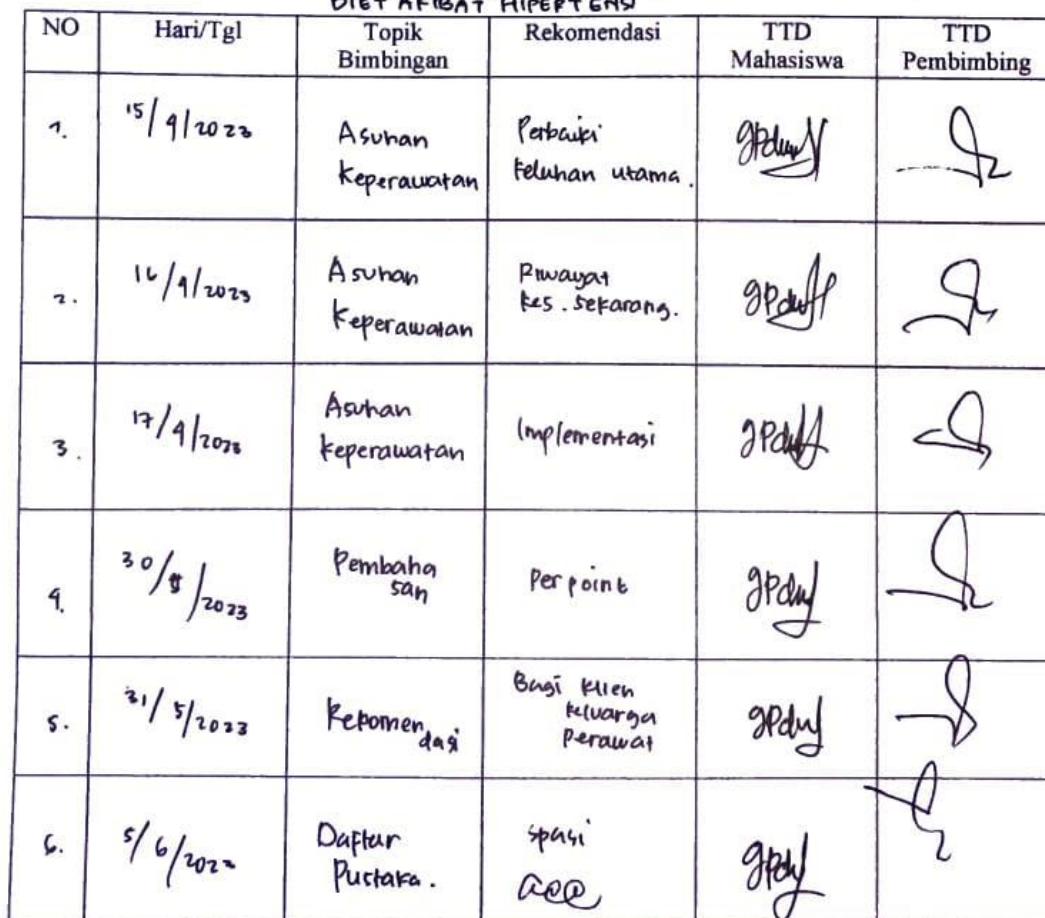 DIET AKIBAT HIPERTENSI
NO Hari/Tgl Topik Bimbingan Rekomendasi TTD Mahasiswa TTD Pembimbing
1. 15/4/2023 Asuhan Keperawatan Perbaiki keluhan utama.
2. 16/4/2023 Asuhan Keperawatan Riwayat kes. sekarang.
3. 17/4/2023 Asuhan keperawatan Implementasi
4. 30/5/2023 Pembahasan Per point
5. 31/5/2023 Rekomendasi Bagi klien keluarga perawat
6. 5/6/2023 Daftar Pustaka. spasi acc